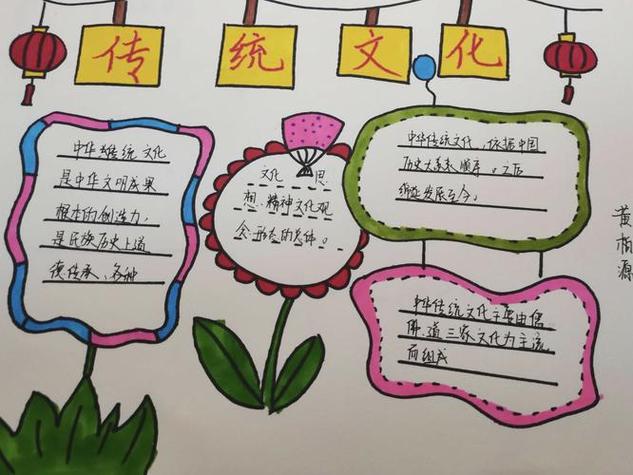 传统文化
中华传统文化
是中华文明成果
根本的创造力,
是民族历史上道
德传承、各种
文化 思
想、精神文化观
念形态的总体。
中华传统文化,依据中国
历史大系表顺序。之后
绵延发展至今。
中华传统文化主要由儒
佛、道三家文化为主流
而组成
黄柏源